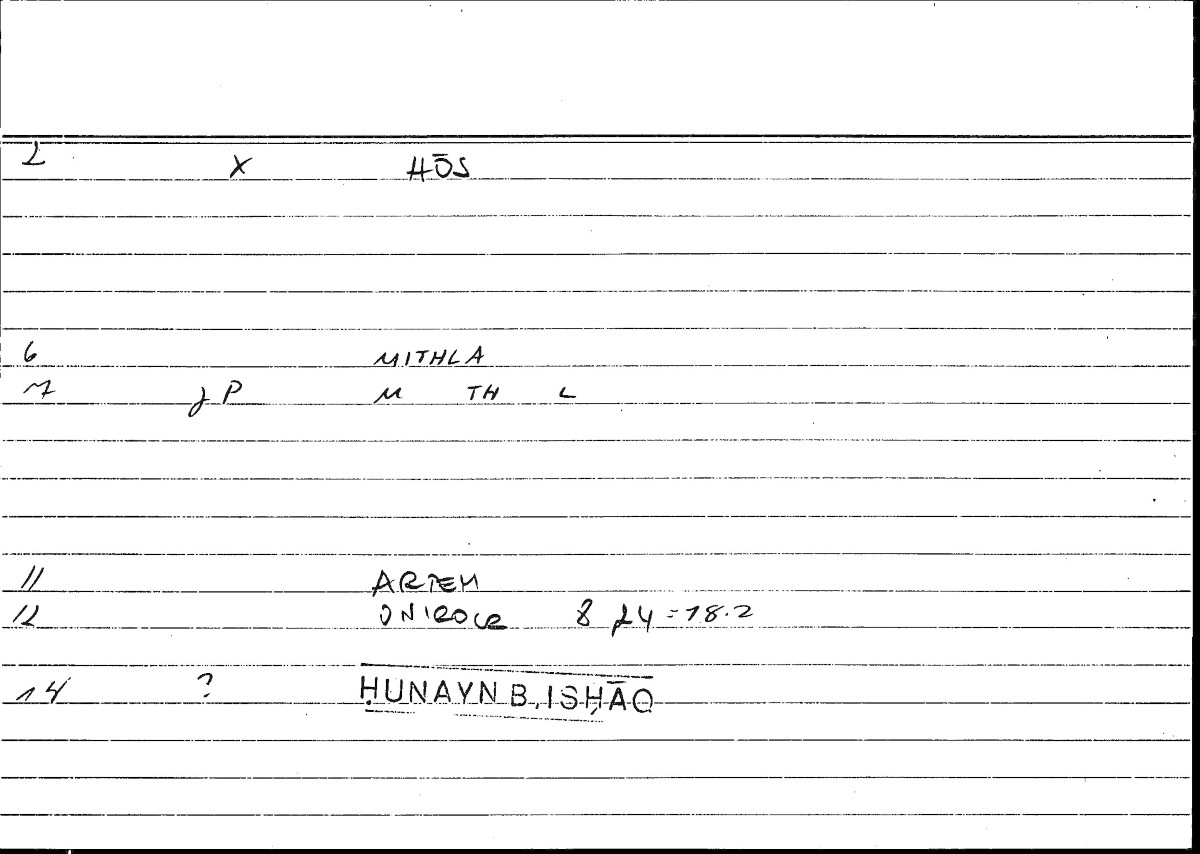 2 X HŌS
6 MITHLA
7 JP M TH L
11 ARTEM
12 ONIROCR 8 24 = 18.2
14 ? ḤUNAYN B. ISḤĀQ